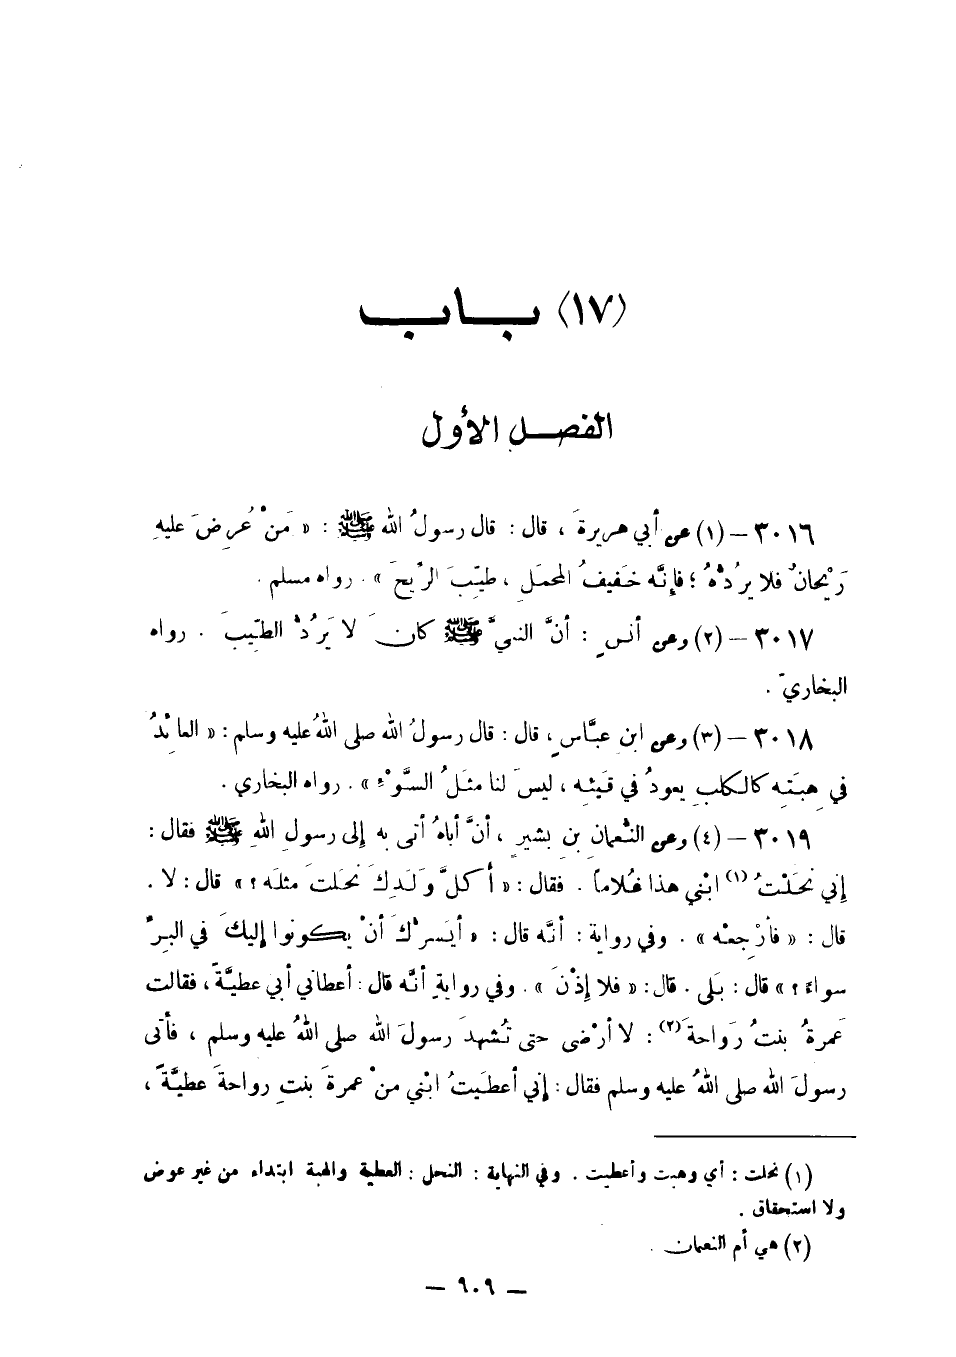 (١٧) باب
الفصل الأول
٣٠١٦ – (١) عن أبي هريرةَ ، قال : قال رسولُ الله ﷺ : « مَنْ عُرِضَ عليهِ
رَيْحانٌ فلا يرُدَّهُ ؛ فإِنَّه خَفيفُ المحمَلِ ، طيّبَ الرّيحَ » . رواه مسلم .
٣٠١٧ – (٢) وعن أنسٍ : أنَّ النبيَّ ﷺ كانَ لا يَرُدُّ الطّيبَ . رواه
البخاريّ .
٣٠١٨ – (٣) وعن ابنِ عبَّاسٍ ، قال : قال رسولُ الله صلى اللهُ عليه وسلم : « العائِدُ
في هِبَتِه كالكلبِ يعودُ في قَيئِه ، ليسَ لنا مثَلُ السَّوْءِ » . رواه البخاري .
٣٠١٩ – (٤) وعن النُّعمانِ بنِ بشيرٍ ، أنَّ أباهُ أتى به إلى رسولِ اللهِ ﷺ فقال :
إني نحَلْتُ (١) ابْني هذا غُلاماً . فقال : « أكلَّ وَلَدِكَ نَحَلتَ مثلَه ؟ » قال : لا .
قال : « فأَرْجِعْه » . وفي رواية : أنَّه قال : « أيَسرُّكَ أنْ يكونوا إليكَ في البِرِّ
سواءً ؟ » قال : بَلى . قال : « فلا إِذْنَ » . وفي روايةٍ أنَّه قال : أعطاني أبي عطيَّةً ، فقالت
عَمرةُ بنتُ رَواحةَ (٢) : لا أرْضى حتى تُشهِدَ رسولَ الله صلى اللهُ عليه وسلم ، فأتى
رسولَ الله صلى اللهُ عليه وسلم فقال : إني أعطَيتُ ابْني منْ عمرةَ بنتِ رواحةَ عطيَّةً ،
(١) نحلت : أي وهبت وأعطيت . وفي النهاية : النحل : العطية والهبة ابتداء من غير عوض
ولا استحقاق .
(٢) هي أم النعمان .
– ٩٠٩ –